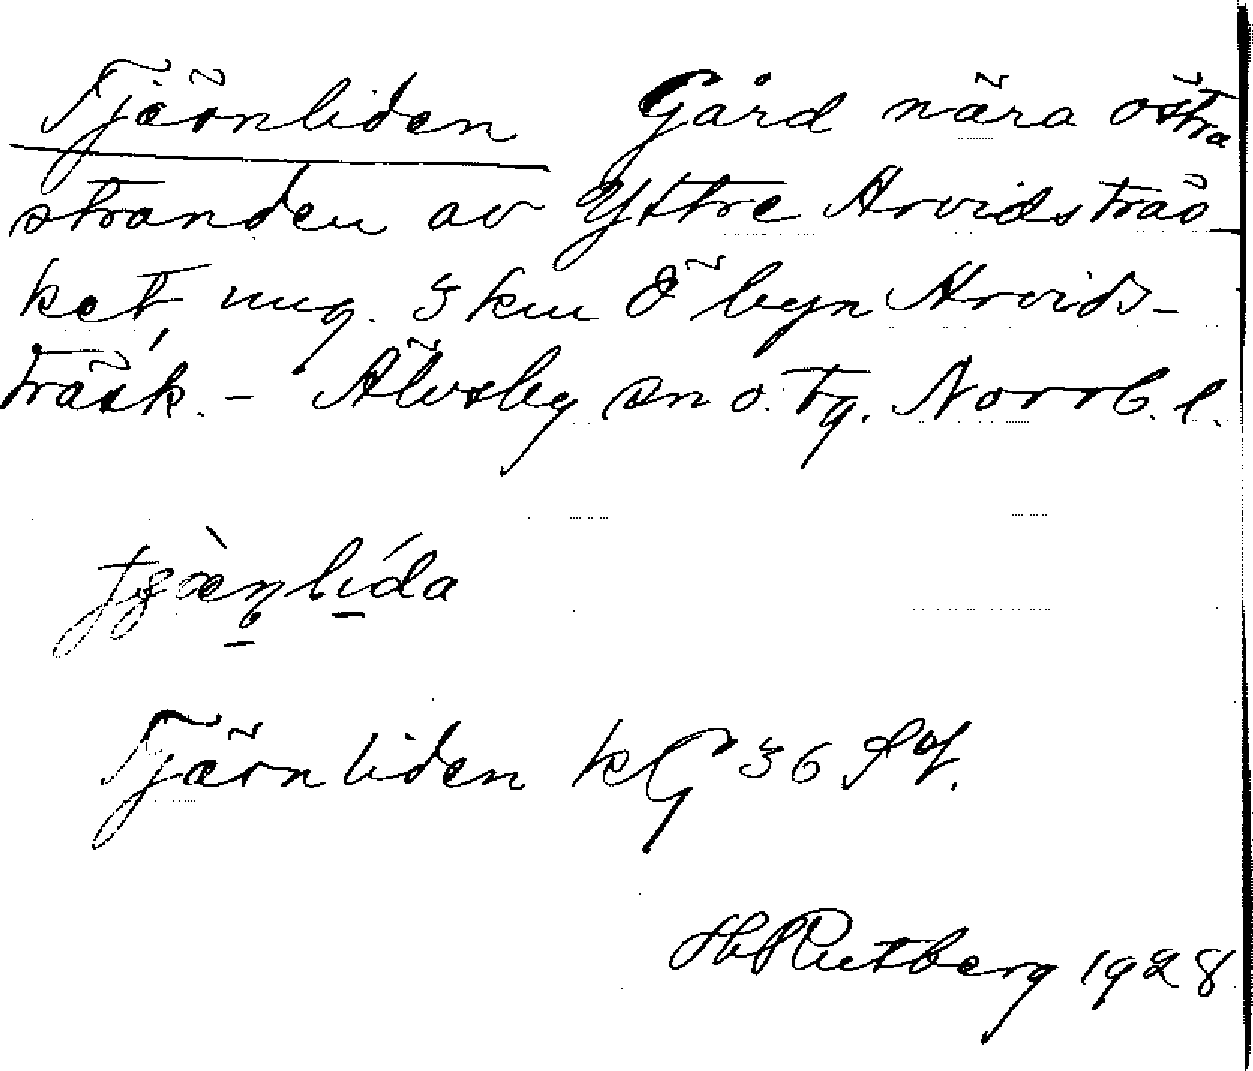 Tjärnliden Gård nära östra
stranden av Yttre Arvidsträs-
ket, ung. 3 km Ö byn Arvids-
träsk. - Älvsby sn o. tg. Norrb. l.
Tjärnliden kG 36
H Rutberg 1928